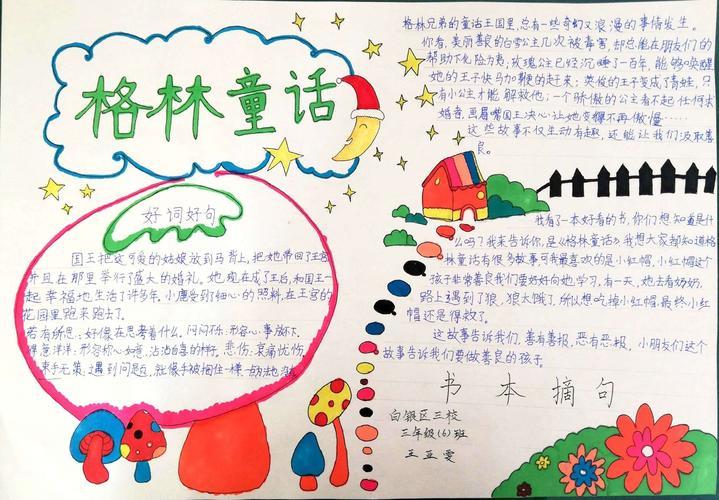 格林童话
格林兄弟的童话王国里,总有一些奇幻又浪漫的事情发生。
你看,美丽善良的白雪公主几次被毒害,却总能在朋友们的
帮助下化险为夷;玫瑰公主已经沉睡了一百年,能够唤醒
她的王子快马加鞭的赶来;英俊的王子变成了青蛙,只
有小公主才能解救他;一个骄傲的公主看不起任何求
婚者,画眉嘴国王决心让她变得不再傲慢……
这些故事不仅生动有趣,还能让我们汲取善
良。
好词好句
国王把这可爱的姑娘放到马背上,把她带回了王宫
并且在那里举行了盛大的婚礼。她现在成了王后,和国王一
起幸福地生活了许多年。小鹿受到了细心的照料,在王宫的
花园里跑来跑去了。
若有所思:好像在思考着什么。闷闷不乐:形容心事放不下。
得意洋洋:形容称心如意,沾沾自喜的样子。悲伤:哀痛忧伤。
束手无策:遇到问题,就像手被捆住一样
我有了一本好看的书,你们想知道是什
么吗?我来告诉你,是《格林童话》我想大家都知道格
林童话有很多故事可我最喜欢的是小红帽,小红帽这个
孩子非常善良我们要好好向她学习,有一天,她去看奶奶,
路上遇到了狼,狼太饿了,所以想吃掉小红帽,最终小红
帽还是得救了。
这故事告诉我们,善有善报,恶有恶报,小朋友们这个
故事告诉我们要做善良的孩子。
书本摘句
白银区三校
三年级(6)班
王亚雯